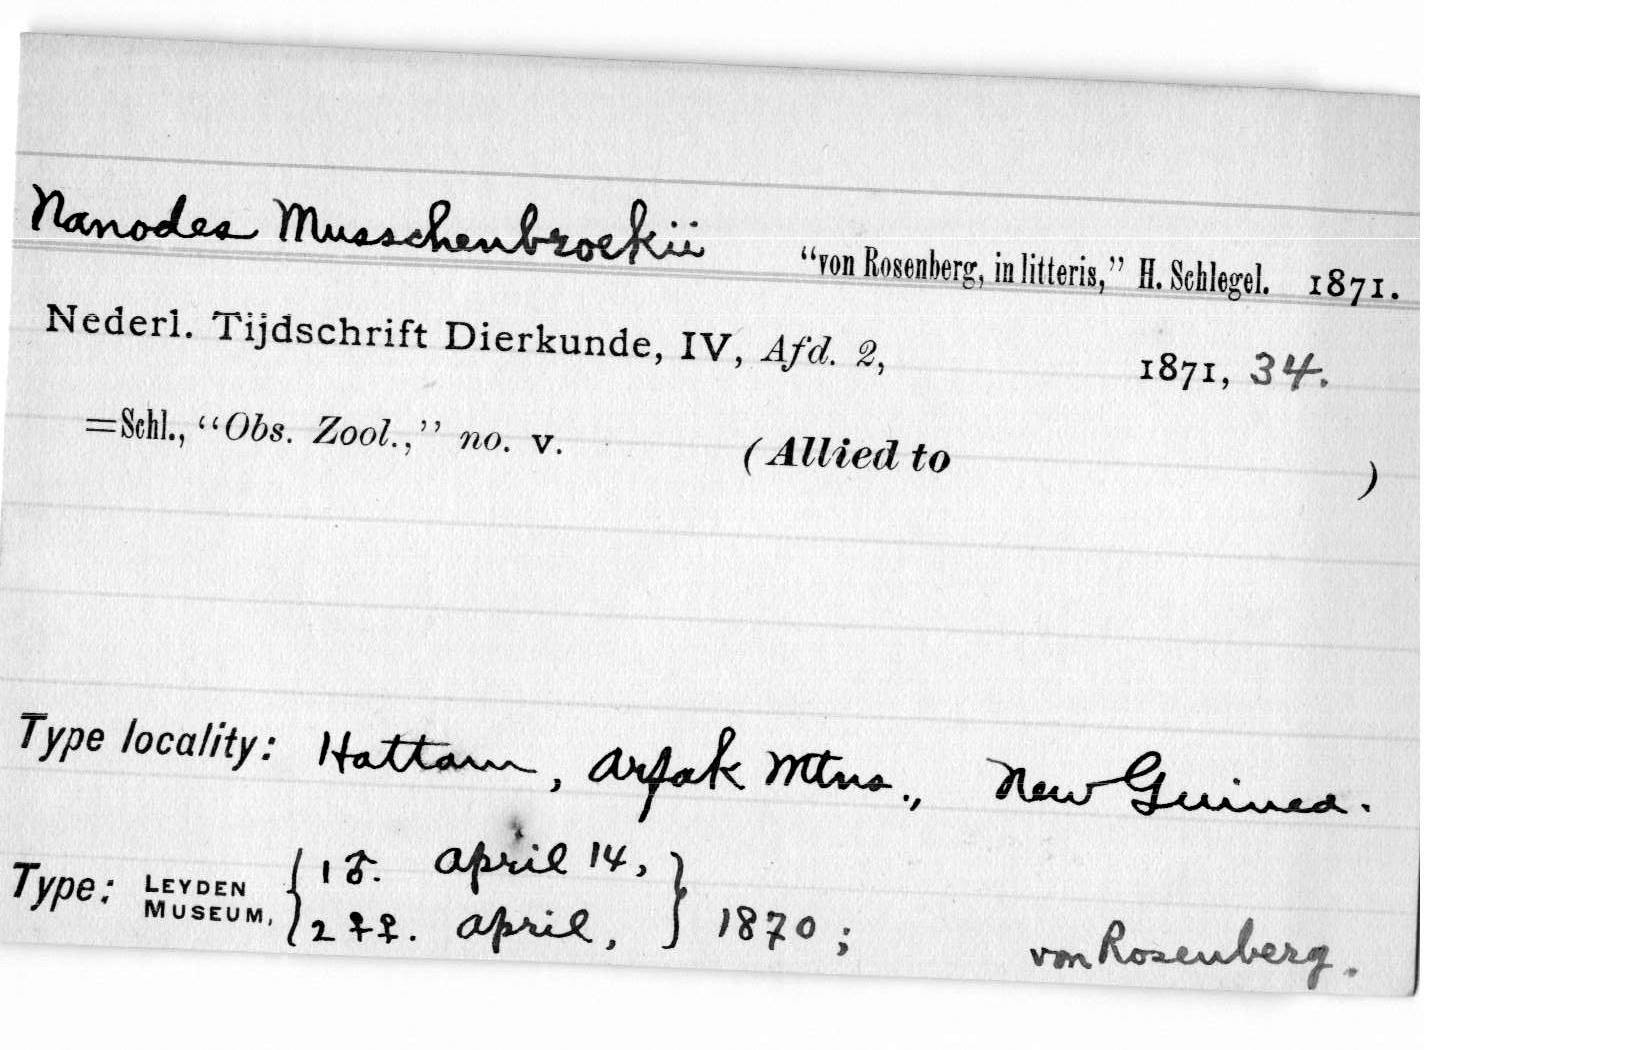 Nanodes Musschenbroekii "von Rosenberg, in litteris," H. Schlegel. 1871.
Nederl. Tijdschrift Dierkunde, IV, Afd. 2, 1871, 34.
=Schl., "Obs. Zool.," no. v. (Allied to )
Type locality: Hattam, Arfak Mtns., New Guinea.
Type: LEYDEN MUSEUM, { 1 ♂. April 14,
2 ♀♀. April, } 1870; von Rosenberg.